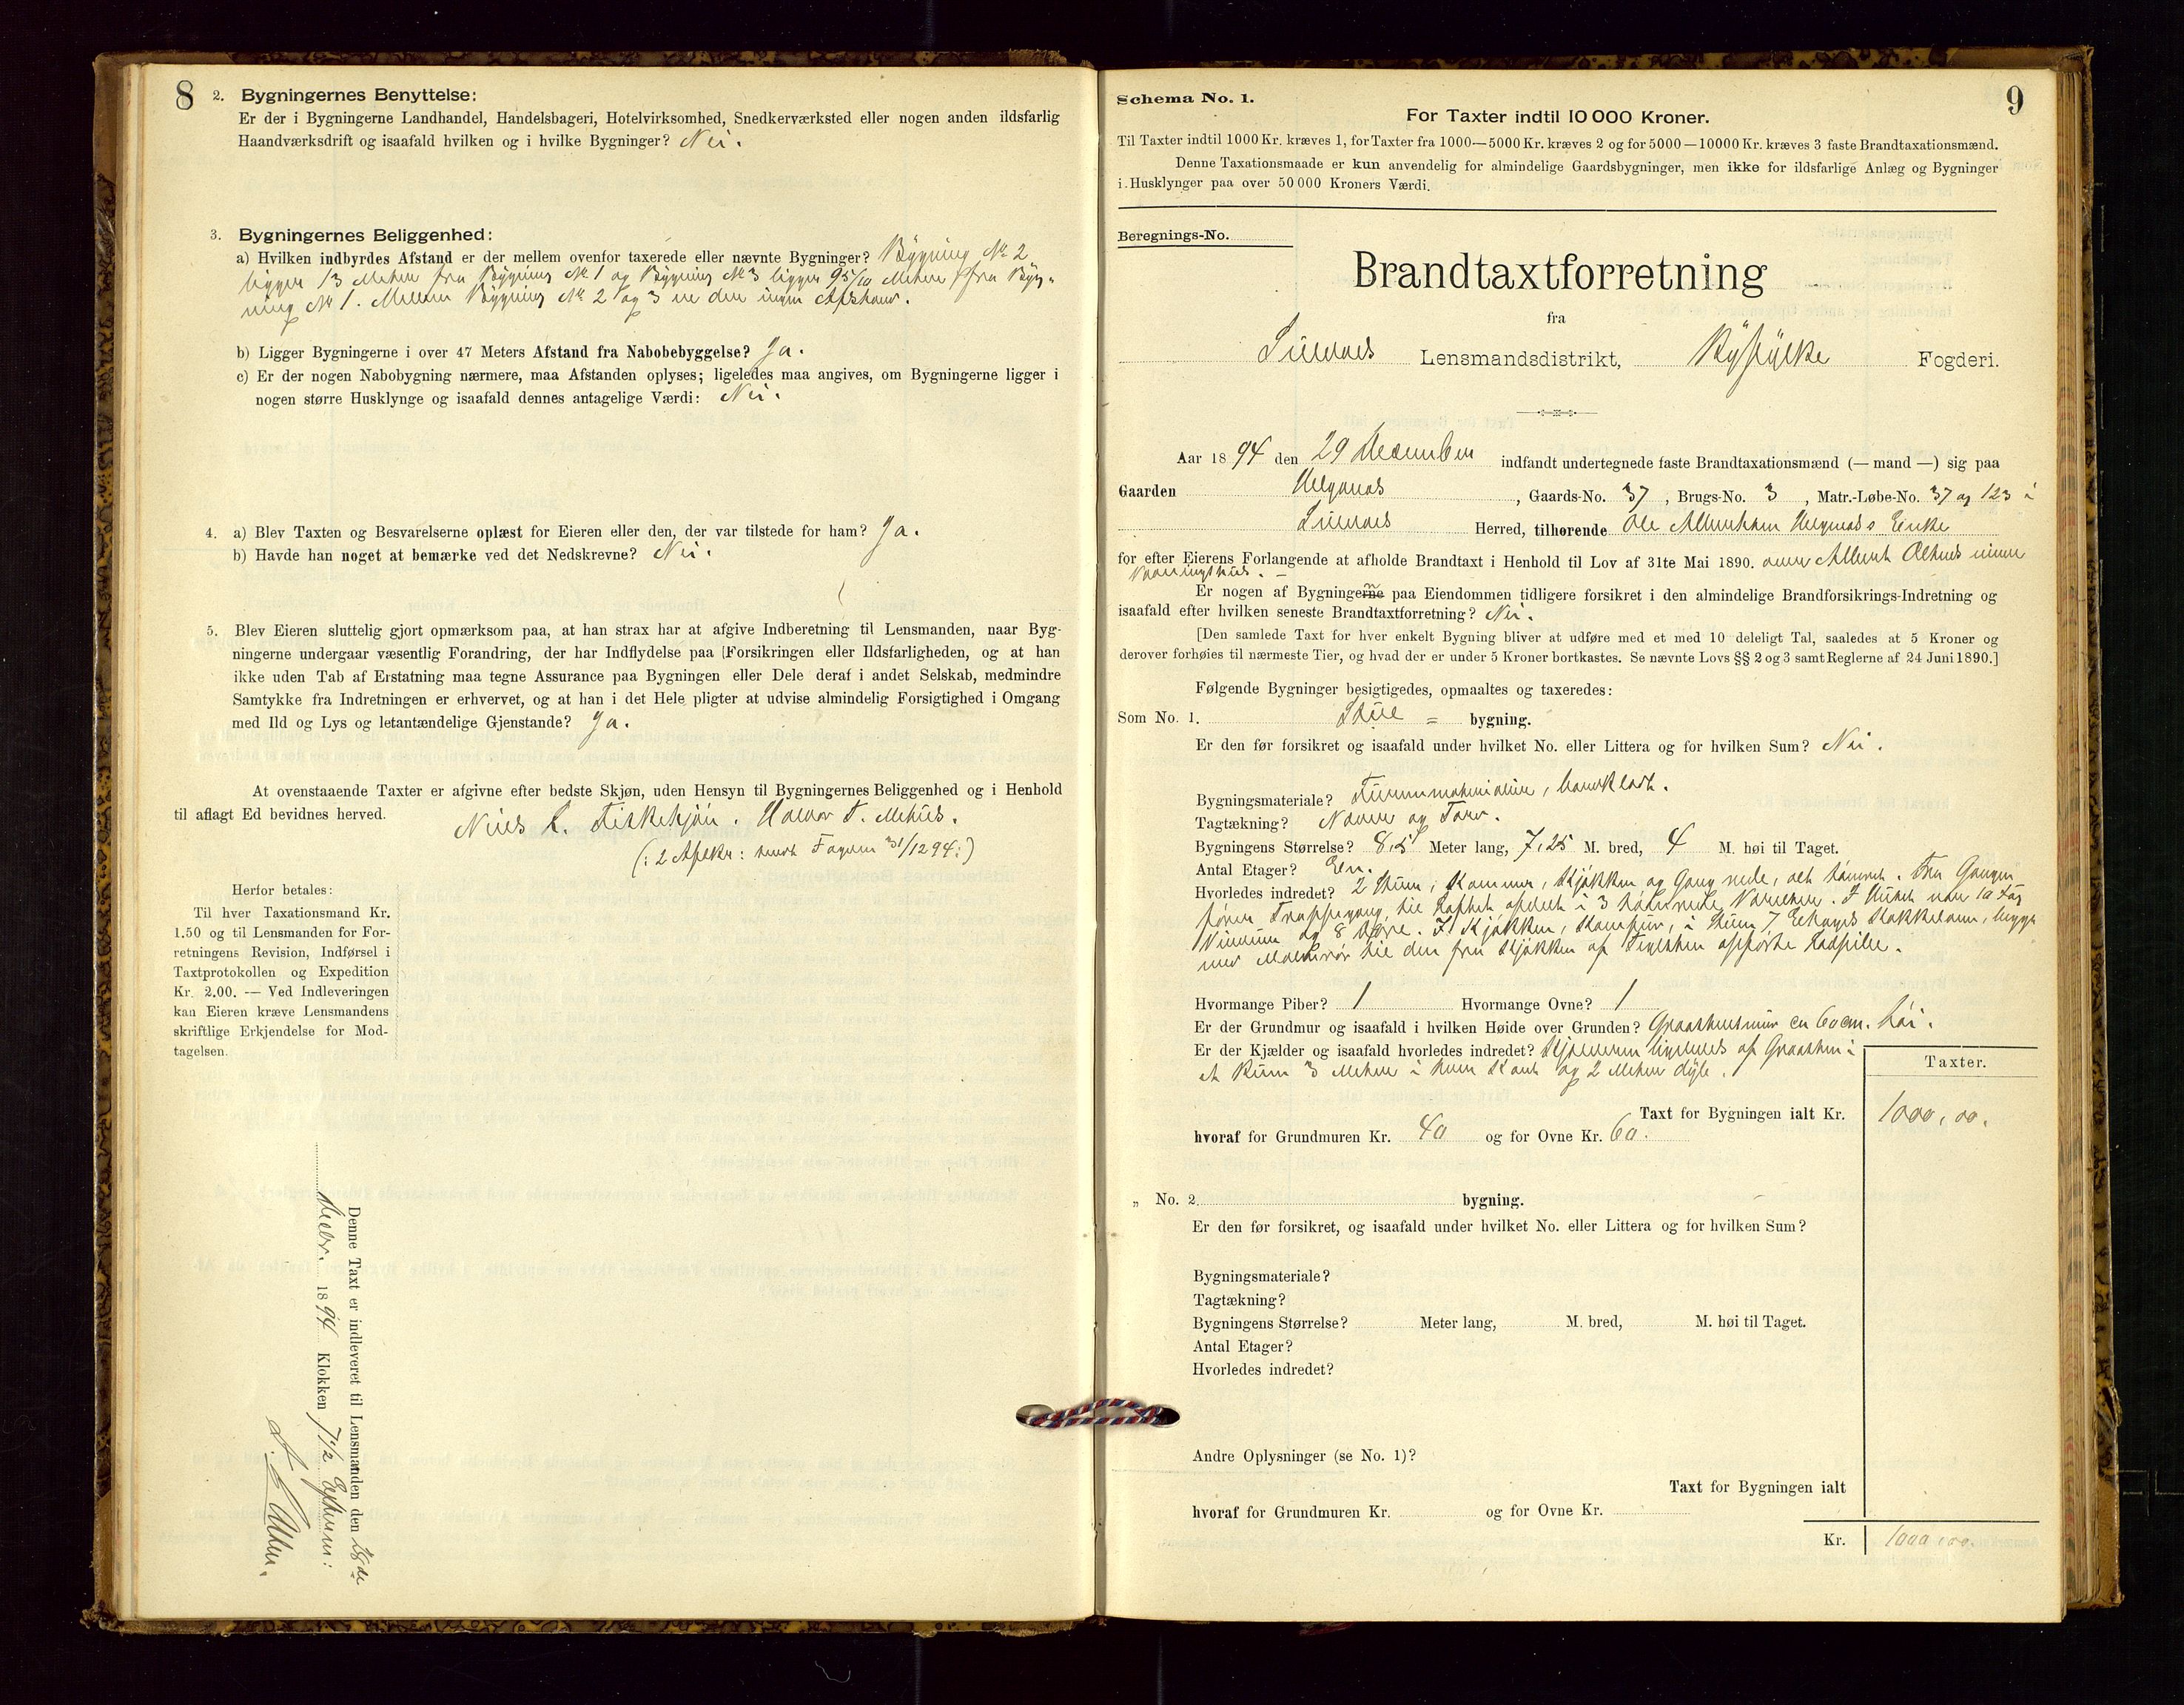 8
2. Bygningernes Benyttelse:
Er der i Bygningerne Landhandel, Handelsbageri, Hotelvirksomhed, Snedkerværksted eller nogen anden ildsfarlig
Haandværksdrift og isaafald hvilken og i hvilke Bygninger? Nei.
3. Bygningernes Beliggenhed:
a) Hvilken indbyrdes Afstand er der mellem ovenfor taxerede eller nævnte Bygninger? Bygning No 2
ligger 13 Meter fra Bygning No 1 og Bygning No 3 ligger 9 5/10 Meter fra Byg-
ning No 1. Mellem Bygning No 2 og 3 er der ingen Afstand.
b) Ligger Bygningerne i over 47 Meters Afstand fra Nabobebyggelse? Ja.
c) Er der nogen Nabobygning nærmere, maa Afstanden oplyses; ligeledes maa angives, om Bygningerne ligger i
nogen større Husklynge og isaafald dennes antagelige Værdi: Nei.
4. a) Blev Taxten og Besvarelserne oplæst for Eieren eller den, der var tilstede for ham? Ja.
b) Havde han noget at bemærke ved det Nedskrevne? Nei.
5. Blev Eieren sluttelig gjort opmærksom paa, at han strax har at afgive Indberetning til Lensmanden, naar Byg-
ningerne undergaar væsentlig Forandring, der har Indflydelse paa Forsikringen eller Ildsfarligheden, og at han
ikke uden Tab af Erstatning maa tegne Assurance paa Bygningen eller Dele deraf i andet Selskab, medmindre
Samtykke fra Indretningen er erhvervet, og at han i det Hele pligter at udvise almindelig Forsigtighed i Omgang
med Ild og Lys og letantændelige Gjenstande? Ja.
At ovenstaaende Taxter er afgivne efter bedste Skjøn, uden Hensyn til Bygningernes Beliggenhed og i Henhold
til aflagt Ed bevidnes herved.
Niels L. Fisketjøn. Halvor T. Mehus.
(: 2 Afskr: sendt Fogden 31/12 94:)
Herfor betales:
Til hver Taxationsmand Kr.
1.50 og til Lensmanden for For-
retningens Revision, Indførsel i
Taxtprotokollen og Expedition
Kr. 2.00. — Ved Indleveringen
kan Eieren kræve Lensmandens
skriftlige Erkjendelse for Mod-
tagelsen.
Denne Taxt er indleveret til Lensmanden den 28de
Decbr. 1894 Klokken 7 1/2 Efterm:
9
Schema No. 1.
For Taxter indtil 10 000 Kroner.
Til Taxter indtil 1000 Kr. kræves 1, for Taxter fra 1000—5000 Kr. kræves 2 og for 5000—10000 Kr. kræves 3 faste Brandtaxationsmænd.
Denne Taxationsmaade er kun anvendelig for almindelige Gaardsbygninger, men ikke for ildsfarlige Anlæg og Bygninger
i Husklynger paa over 50 000 Kroners Værdi.
Beregnings-No.
Brandtaxtforretning
fra
Suldals Lensmandsdistrikt, Ryfylke Fogderi.
Aar 1894 den 29 December indfandt undertegnede faste Brandtaxationsmænd (— mand —) sig paa
Gaarden Helganes, Gaards-No. 37, Brugs-No. 3, Matr.-Løbe-No. 37 og 123 i
Suldals Herred, tilhørende Ole Helganes's Enke
for efter Eierens Forlangende at afholde Brandtaxt i Henhold til Lov af 31te Mai 1890.
Vaaningshus. —
Er nogen af Bygningerne paa Eiendommen tidligere forsikret i den almindelige Brandforsikrings-Indretning og
isaafald efter hvilken seneste Brandtaxtforretning? Nei.
[Den samlede Taxt for hver enkelt Bygning bliver at udføre med et med 10 deleligt Tal, saaledes at 5 Kroner og
derover forhøies til nærmeste Tier, og hvad der er under 5 Kroner bortkastes. Se nævnte Lovs §§ 2 og 3 samt Reglerne af 24 Juni 1890.]
Følgende Bygninger besigtigedes, opmaaltes og taxeredes:
Som No. 1. Stue = bygning.
Er den før forsikret og isaafald under hvilket No. eller Littera og for hvilken Sum? Nei.
Bygningsmateriale? Tømmermateriale, bordklædt.
Tagtækning? Næver og Torv.
Bygningens Størrelse? 8,5 Meter lang, 7,25 M. bred, 4 M. høi til Taget.
Antal Etager? En.
Hvorledes indredet? 2 Stuer, Kammer, Kjøkken og Gang nede, alt tømret. Fra Gangen
fører Trappegang til Loftet afdelt i 3 Værelser. I Huset er 10 Fag
Vinduer og 8 Døre. I Kjøkken, Komfur, i Stuen, 7 Etages
med til den fra Kjøkken af Teglsten opførte
Hvormange Piber? 1 Hvormange Ovne? 1
Er der Grundmur og isaafald i hvilken Høide over Grunden? Graastensmur ca 60 cm. høi.
Er der Kjælder og isaafald hvorledes indredet? Kjælderen ligeledes af Graasten i
et Rum 3 Meter i hver Kant og 2 Meter dyb.
Taxter.
Taxt for Bygningen ialt Kr. 1000,00.
hvoraf for Grundmuren Kr. 40 og for Ovne Kr. 60.
„ No. 2. bygning.
Er den før forsikret, og isaafald under hvilket No. eller Littera og for hvilken Sum?
Bygningsmateriale?
Tagtækning?
Bygningens Størrelse? Meter lang, M. bred, M. høi til Taget.
Antal Etager?
Hvorledes indredet?
Andre Oplysninger (se No. 1)?
Taxt for Bygningen ialt
hvoraf for Grundmuren Kr. og for Ovne Kr.
Kr. 1000,00.